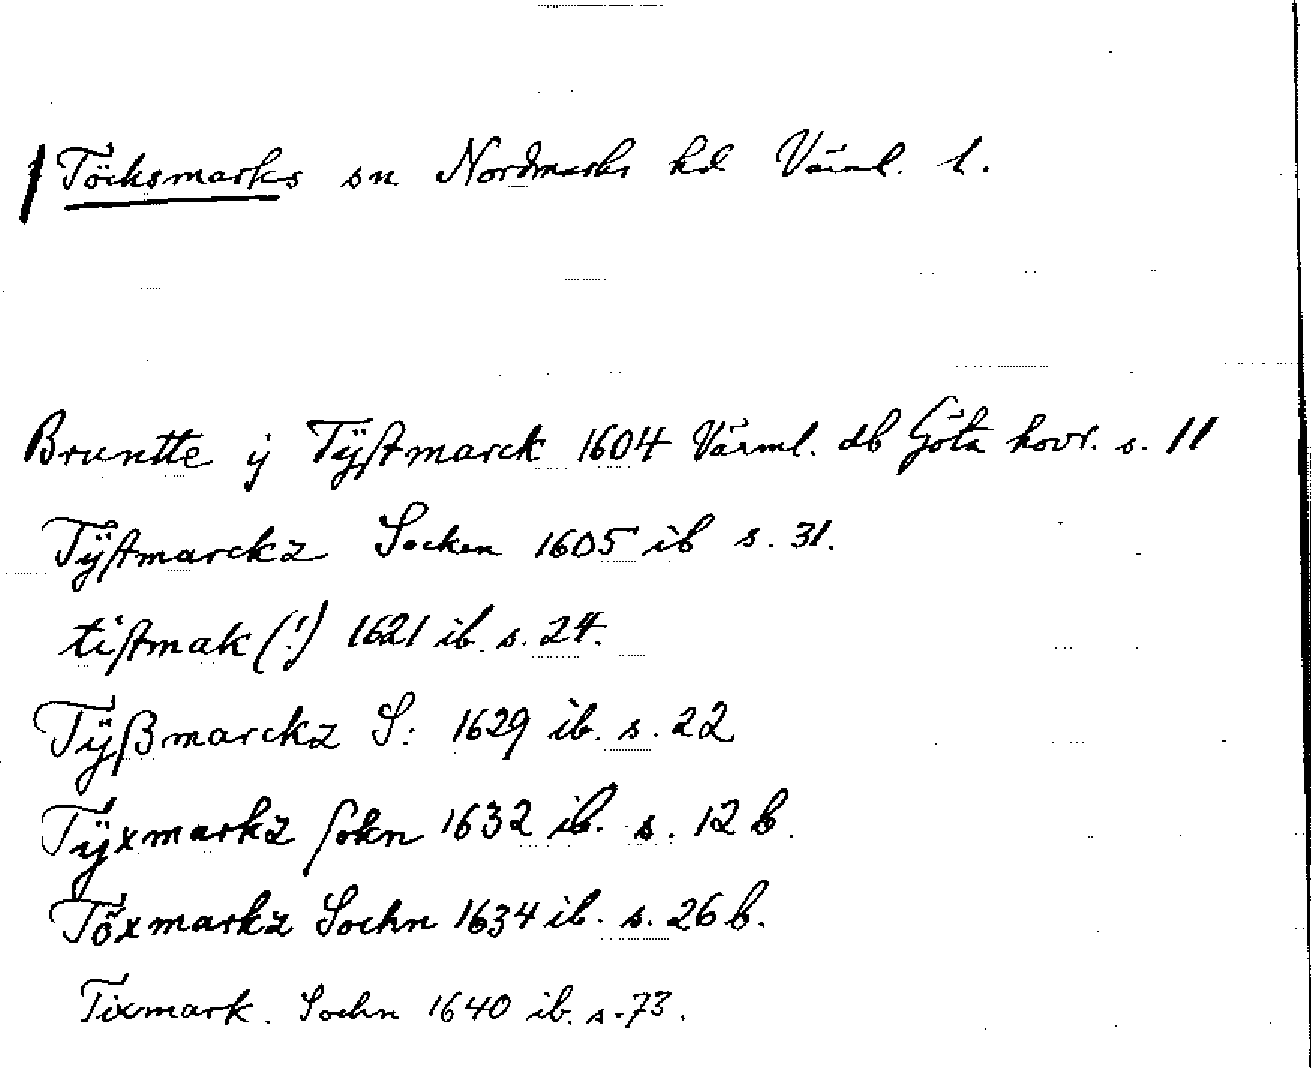 Töcksmarks sn Nordmarks hd Värml. l.
Bruntte ij Tÿstmarck 1604 Värml. db Göta hovr. s. 11
Tÿstmarckz Socken 1605 ib s. 31.
tistmak (!) 1621 ib. s. 24.
Tÿßmarckz S: 1629 ib. s. 22
Tÿxmarkz sokn 1632 ib. s. 12 b.
Töxmarkz Sochn 1634 ib. s. 26 b.
Tixmark. Sochn 1640 ib. s. 73.